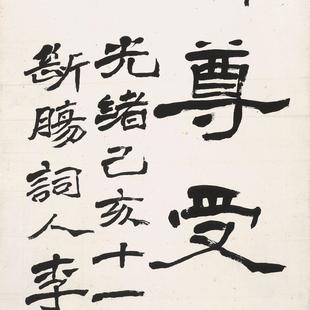 尊受
光緒己亥十一
斷腸詞人李